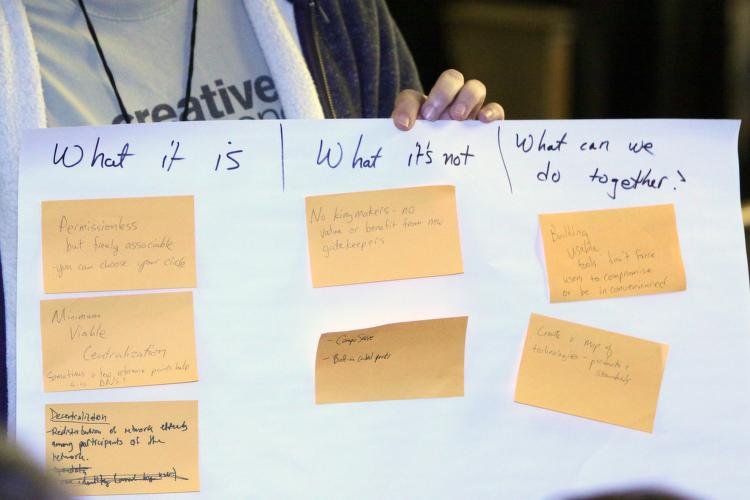 creative
What it is
What it's not
What can we
do together?
Permissionless
but freely associable
- you can choose your circle
Minimum
Viable
Centralization
Sometimes a few reference points help
e.g. DNS!
Decentralization
- Redistribution of network effects
among participants of the
network.
No kingmakers - no
value or benefit from new
gatekeepers
- CompuServe
- Built-in control points
Building
usable
tools don't force
users to compromise
or be inconvenienced
Create a map of
technologies - products +
standards